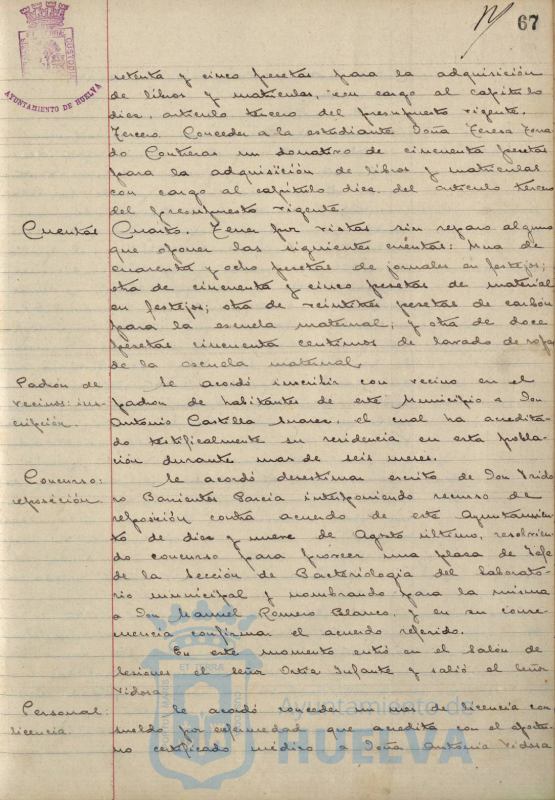 67
AYUNTAMIENTO DE HUELVA
setenta y cinco pesetas para la adquisición
de libros y matriculas, con cargo al capitulo
diez, articulo tercero del presupuesto vigente.
Tercero. Conceder a la estudiante Doña Teresa
do Contreras un donativo de cincuenta pesetas
para la adquisición de libros y matriculas
con cargo al capítulo diez del articulo tercero
del presupuesto vigente.
Cuentas
Cuarto. Tener por vistas sin reparo alguno
que oponer las siguientes cuentas: una de
cuarenta y ocho pesetas de jornales en festejos;
otra de cincuenta y cinco pesetas de material
en festejos; otra de veintitres pesetas de carbón
para la escuela maternal; y otra de doce
pesetas cincuenta centimos de lavado de ropa
de la escuela maternal.
Padrón de
vecinos: ins-
cripción.
Se acordó inscribir con vecino en el
padron de habitantes de este Municipio a Don
Antonio Castilla Suarez, el cual ha acredita-
do testificalmente su residencia en esta pobla-
ción durante mas de seis meses.
Concurso:
reposición.
Se acordó desestimar escrito de Don Ysido
ro Barrientos Garcia interponiendo recurso de
reposición contra acuerdo de este Ayuntamien
to de diez y nueve de Agosto último, resolvien
do concurso para proveer una plaza de Jefe
de la Sección de Bacteriologia del Laborato-
rio municipal y nombrando para la misma
a Don Manuel Romero Blanco, y en su conse-
cuencia confirmar el acuerdo referido.
En este momento entró en el Salón de
Sesiones el Señor Ortiz Infante y salió el Señor
Vidosa
Personal:
licencia.
Se acordó conceder un mes de licencia con
sueldo por enfermedad que acredita con el oportu-
no certificado médico, a Doña Antonia Vidosa
Ayuntamiento de
HUELVA